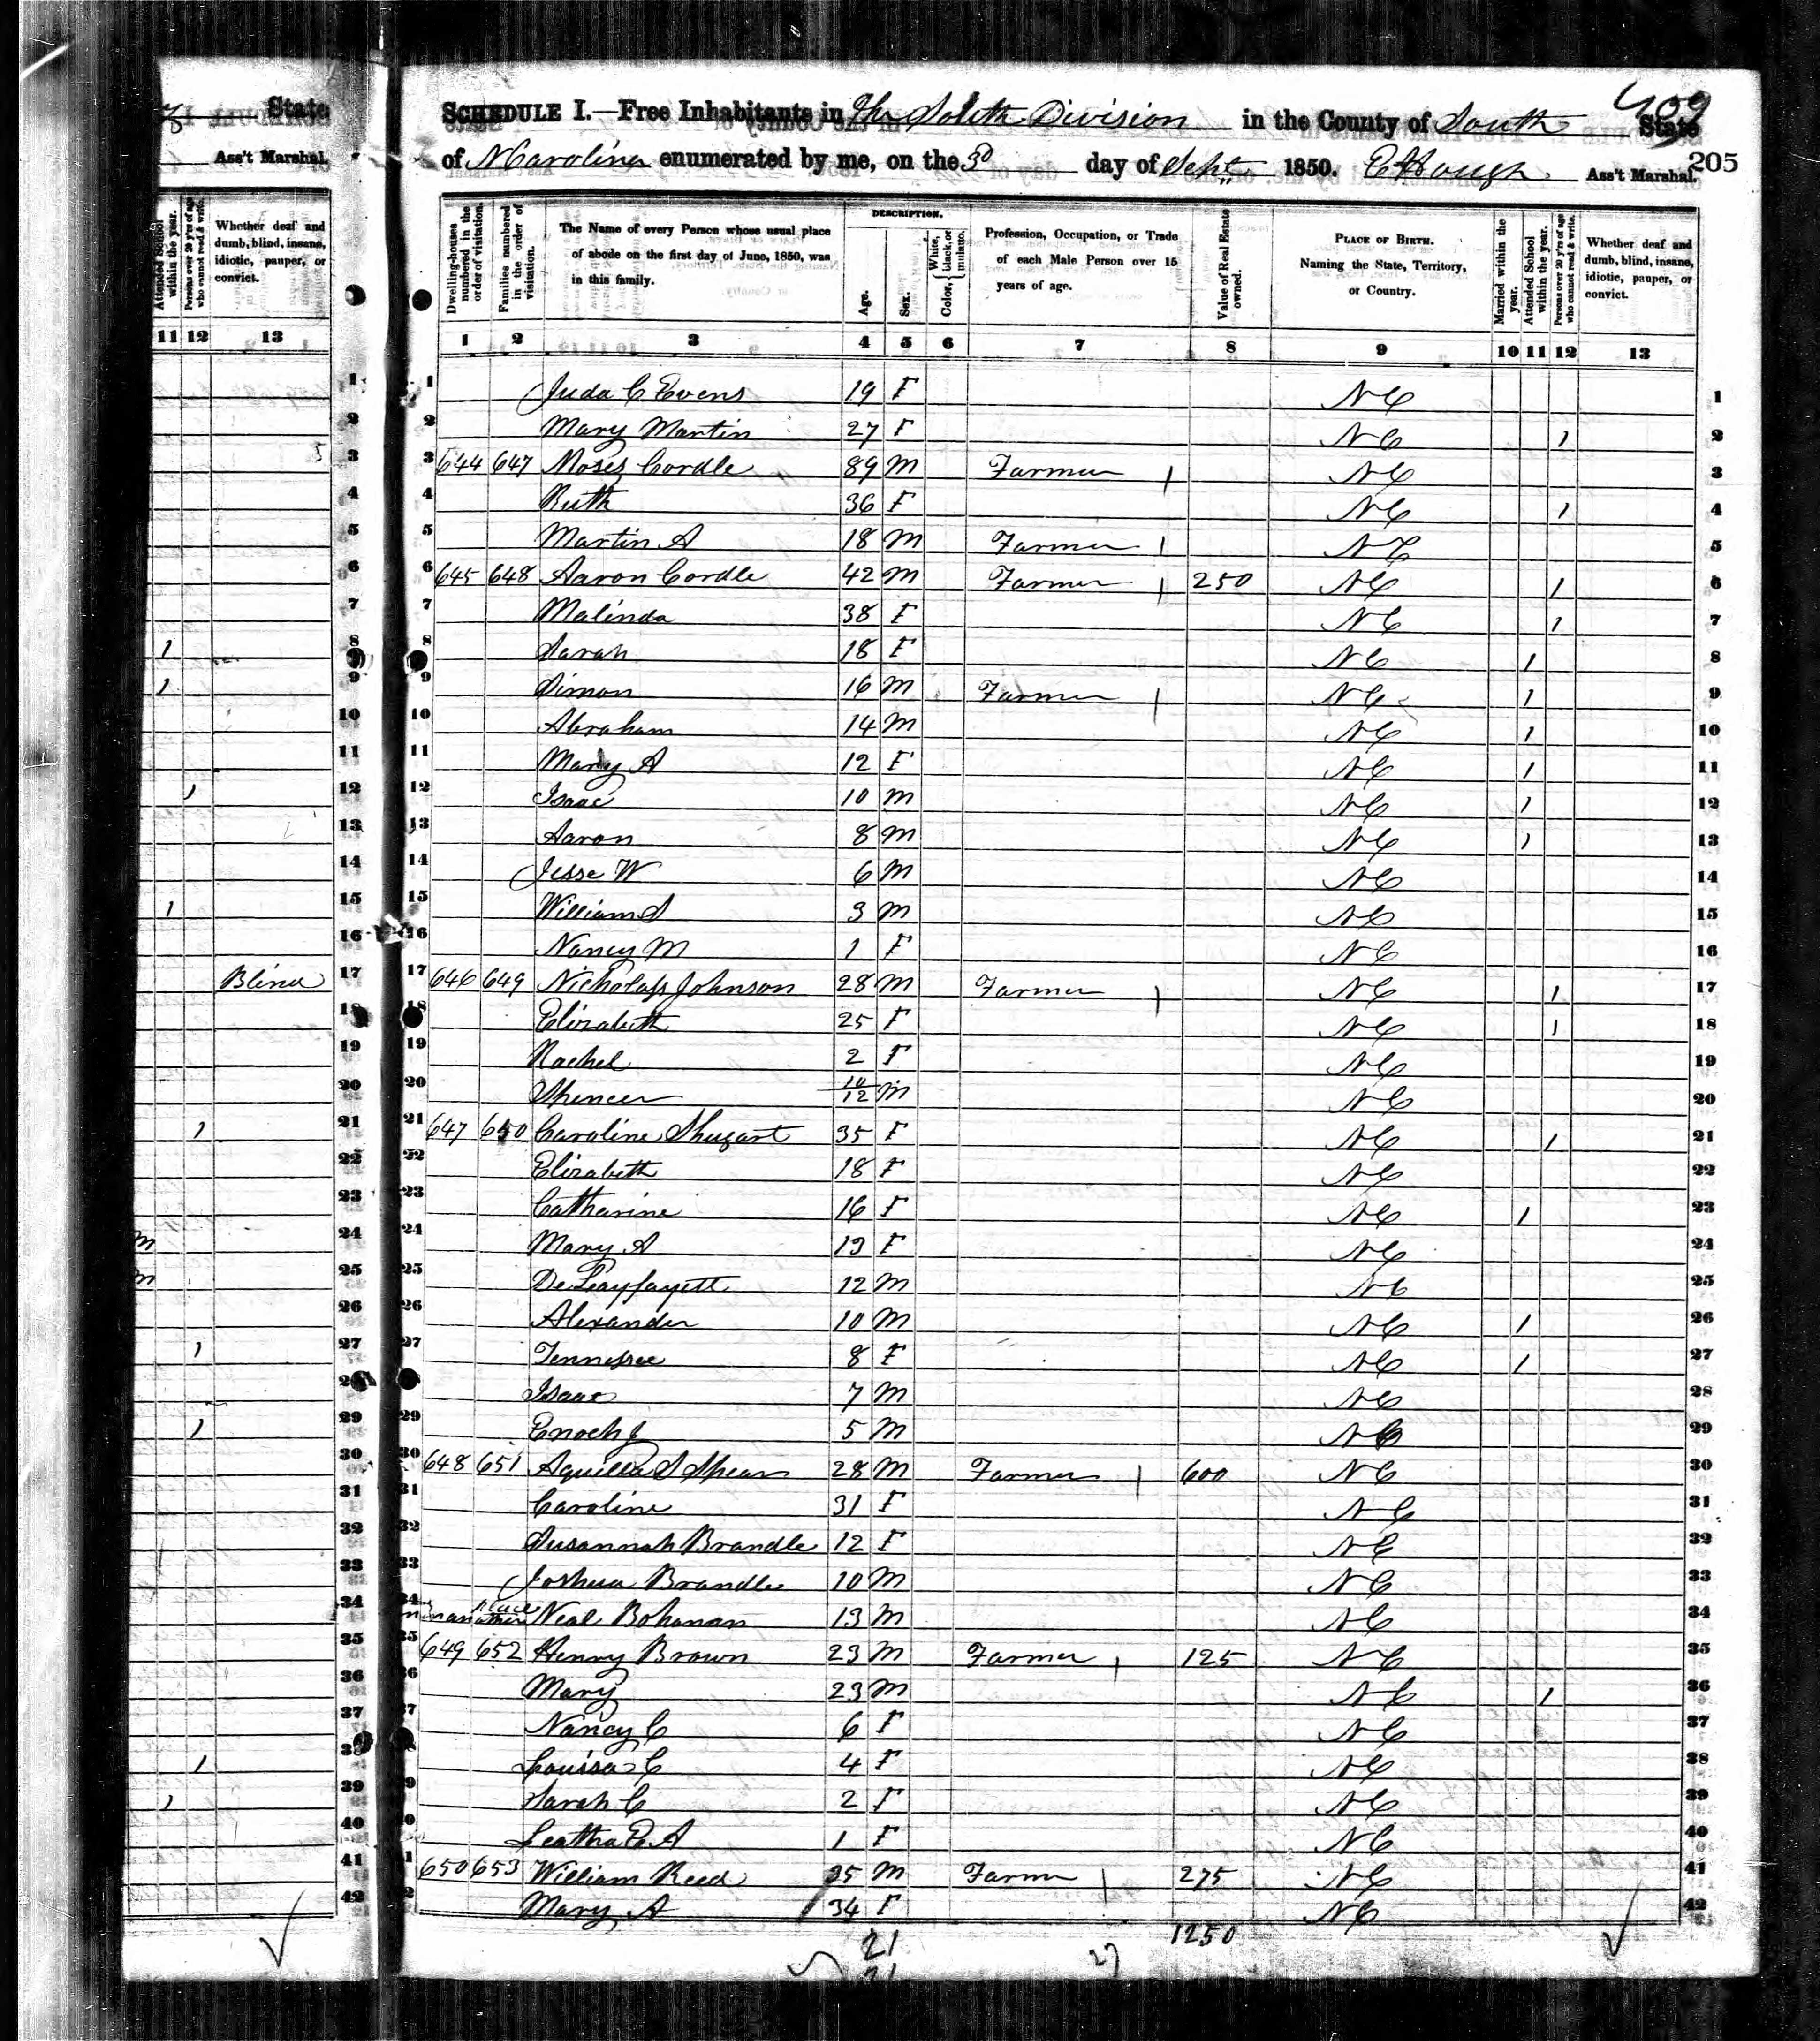 State
Ass't Marshal.
Attended School within the year.
Persons over 20 y'rs of age who cannot read & write.
Whether deaf and dumb, blind, insane, idiotic, pauper, or convict.
11 12 13
Blind
409
SCHEDULE I.—Free Inhabitants in The South Division in the County of South State
of N Carolina enumerated by me, on the 3d day of Sept 1850. Ass't Marshal.
205
Dwelling-houses numbered in the order of visitation.
Families numbered in the order of visitation.
The Name of every Person whose usual place of abode on the first day of June, 1850, was in this family.
DESCRIPTION.
Age.
Sex.
Color, { White, black, or mulatto.
Profession, Occupation, or Trade of each Male Person over 15 years of age.
Value of Real Estate owned.
PLACE OF BIRTH. Naming the State, Territory, or Country.
Married within the year.
Attended School within the year.
Persons over 20 y'rs of age who cannot read & write.
Whether deaf and dumb, blind, insane, idiotic, pauper, or convict.
1 2 3 4 5 6 7 8 9 10 11 12 13
1 Juda C Evens 19 F NC 1
2 Mary Martin 27 F NC 1 2
3 644 647 Moses Cordle 89 M Farmer NC 3
4 Ruth 36 F NC 1 4
5 Martin A 18 M Farmer NC 5
6 645 648 Aaron Cordle 42 M Farmer 250 NC 1 6
7 Malinda 38 F NC 1 7
8 Sarah 18 F NC 1 8
9 Simon 16 M Farmer NC 1 9
10 Abraham 14 M NC 1 10
11 Mary A 12 F NC 1 11
12 Isaac 10 M NC 1 12
13 Aaron 8 M NC 1 13
14 Jesse W 6 M NC 14
15 William S 3 M NC 15
16 Nancy M 1 F NC 16
17 646 649 Nicholass Johnson 28 M Farmer NC 1 17
18 Elizabeth 25 F NC 1 18
19 Rachel 2 F NC 19
20 Spencer 10/12 M NC 20
21 647 650 Caroline Shugart 35 F NC 1 21
22 Elizabeth 18 F NC 22
23 Catharine 16 F NC 1 23
24 Mary A 13 F NC 24
25 De Leayfayett 12 M NC 25
26 Alexander 10 M NC 1 26
27 Tennessee 8 F NC 1 27
28 Isaac 7 M NC 28
29 Enoch J 5 M NC 29
30 648 651 Aquilla S Spear 28 M Farmer 600 NC 30
31 Caroline 31 F NC 31
32 Susannah Brandle 12 F NC 32
33 Joshua Brandle 10 M NC 33
34 Neal Bohanan 13 M NC 34
35 649 652 Henry Brown 23 M Farmer 125 NC 35
36 Mary 23 M NC 1 36
37 Nancy C 6 F NC 37
38 Louisa C 4 F NC 38
39 Sarah C 2 F NC 39
40 Leatha E A 1 F NC 40
41 650 653 William Reed 25 M Farmer 275 NC 41
42 Mary A 34 F NC 42
21 27 1250